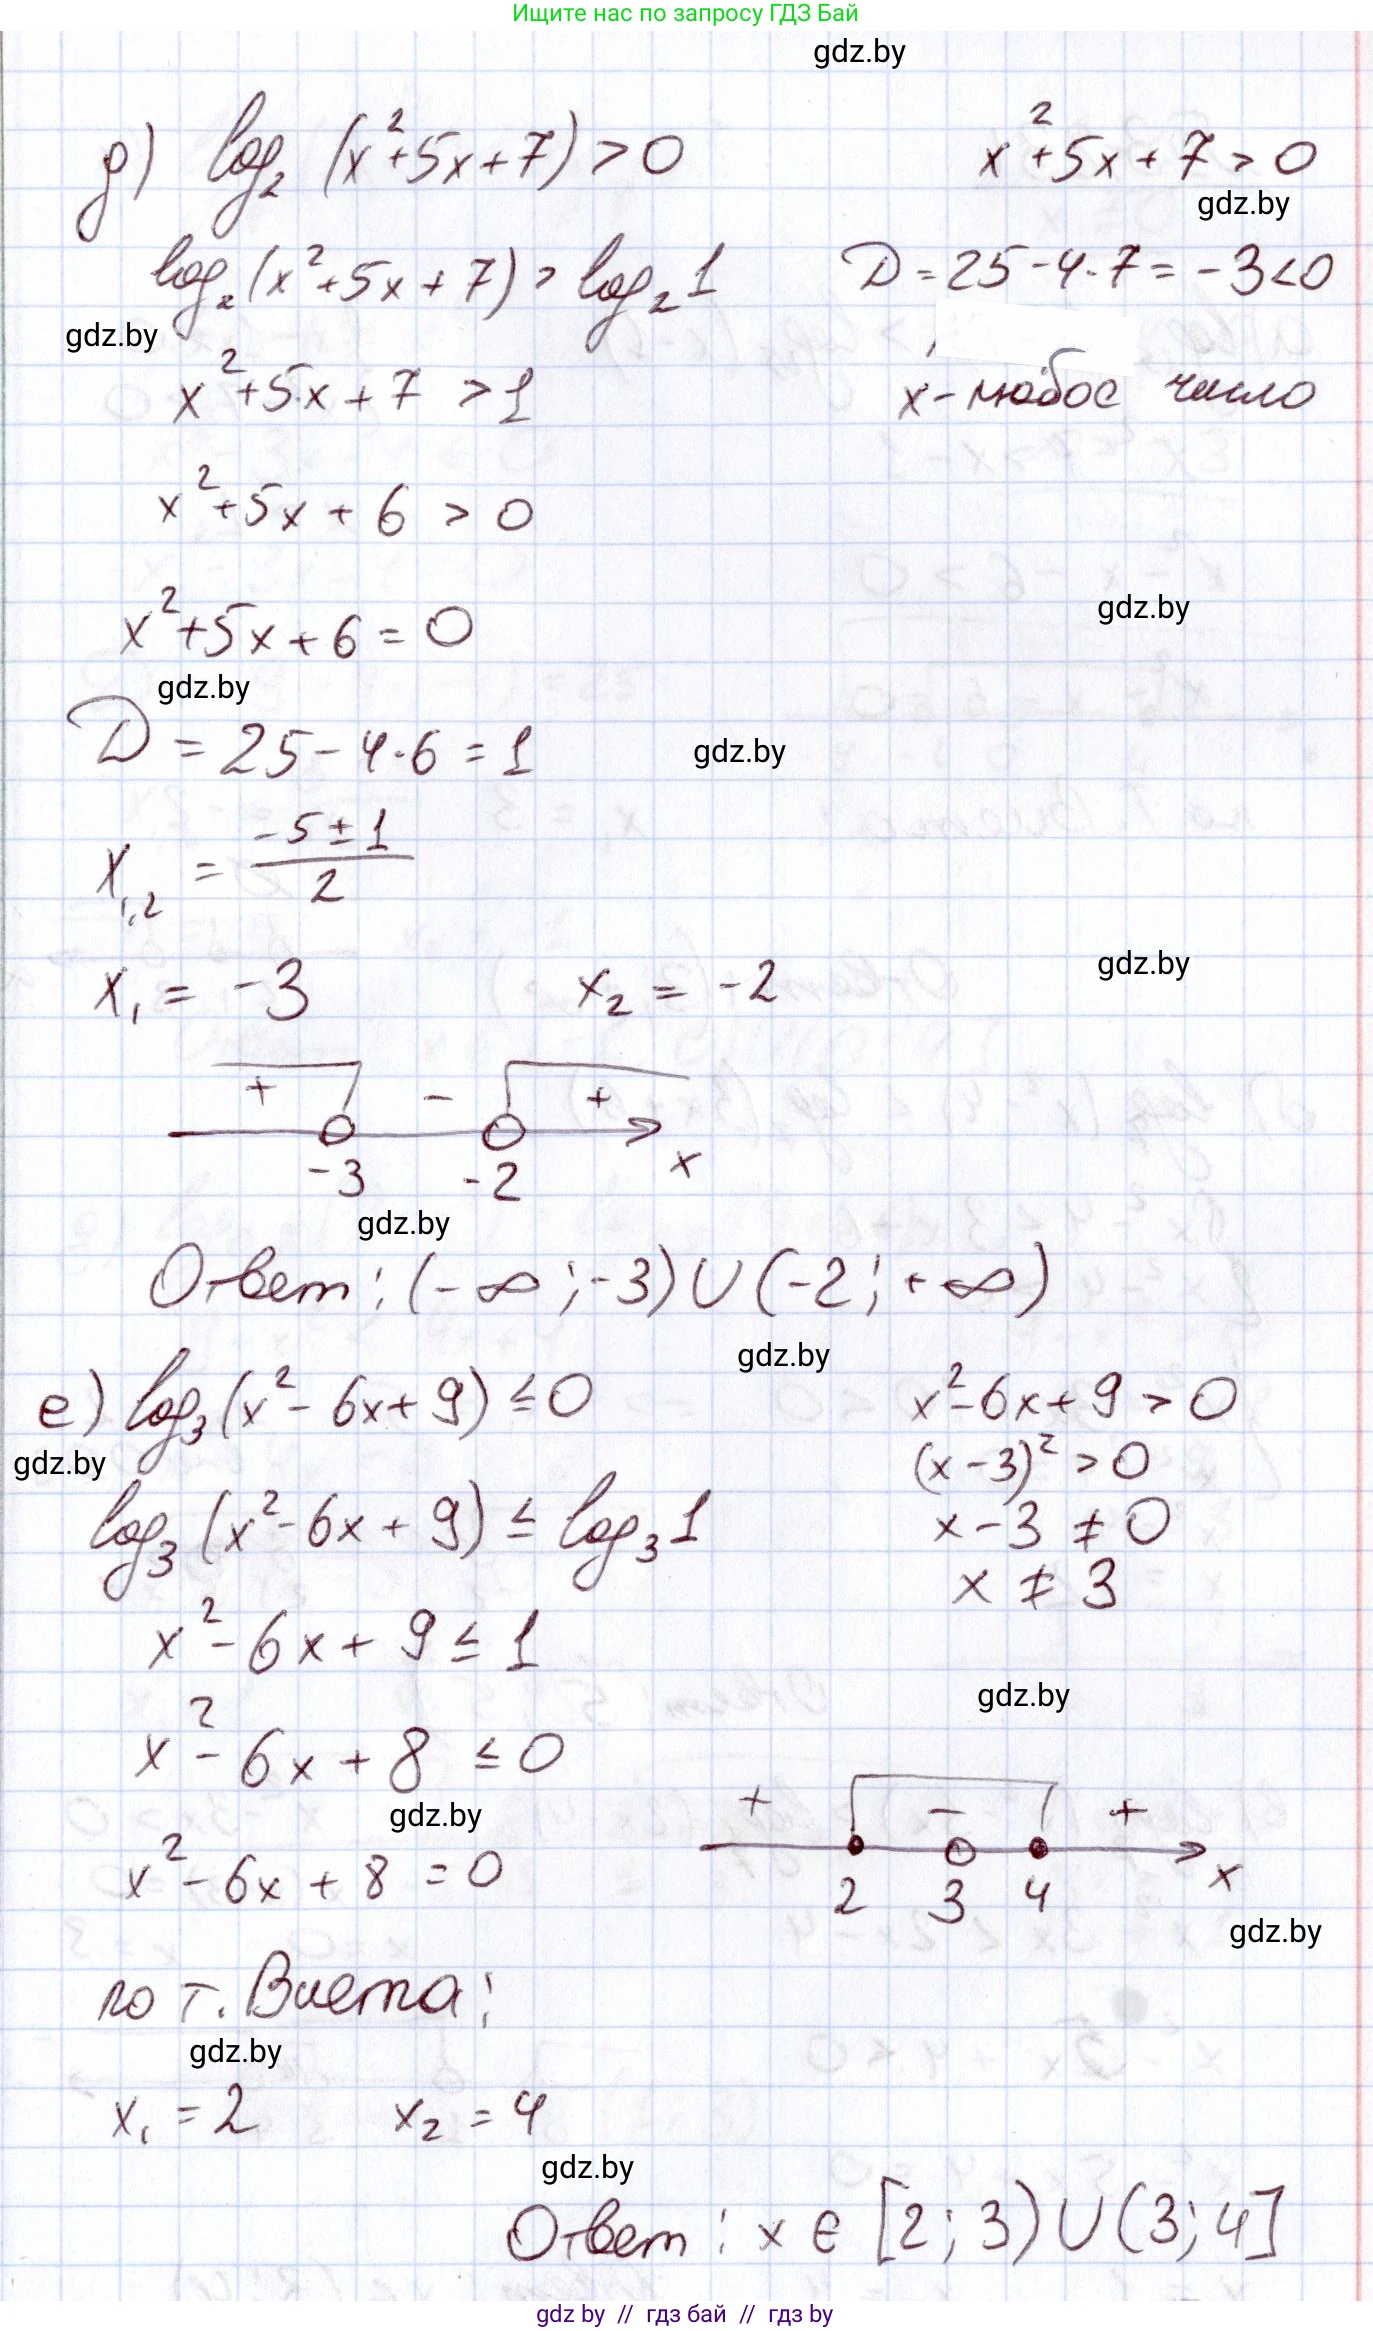 Ищите нас по запросу ГДЗ Бай
gdz.by
д) log₂ (x²+5x+7) > 0
x²+5x+7 > 0
gdz.by
log₂ (x²+5x+7) > log₂ 1
D = 25-4·7 = -3 < 0
gdz.by
x²+5x+7 > 1
x - любое число
x²+5x+6 > 0
gdz.by
x²+5x+6 = 0
gdz.by
D = 25-4·6 = 1
gdz.by
x₁,₂ = (-5±1)/2
gdz.by
x₁ = -3 x₂ = -2
+ - +
-3 -2 x
gdz.by
Ответ: (-∞; -3) ∪ (-2; +∞)
gdz.by
е) log₃ (x²-6x+9) ≤ 0
x²-6x+9 > 0
gdz.by
(x-3)² > 0
log₃ (x²-6x+9) ≤ log₃ 1
x-3 ≠ 0
x ≠ 3
x²-6x+9 ≤ 1
gdz.by
x²-6x+8 ≤ 0
gdz.by
+ - +
2 3 4 x
x²-6x+8 = 0
gdz.by
по т. Виета:
gdz.by
x₁ = 2 x₂ = 4
gdz.by
Ответ: x ∈ [2; 3) ∪ (3; 4]
gdz by // гдз бай // гдз by